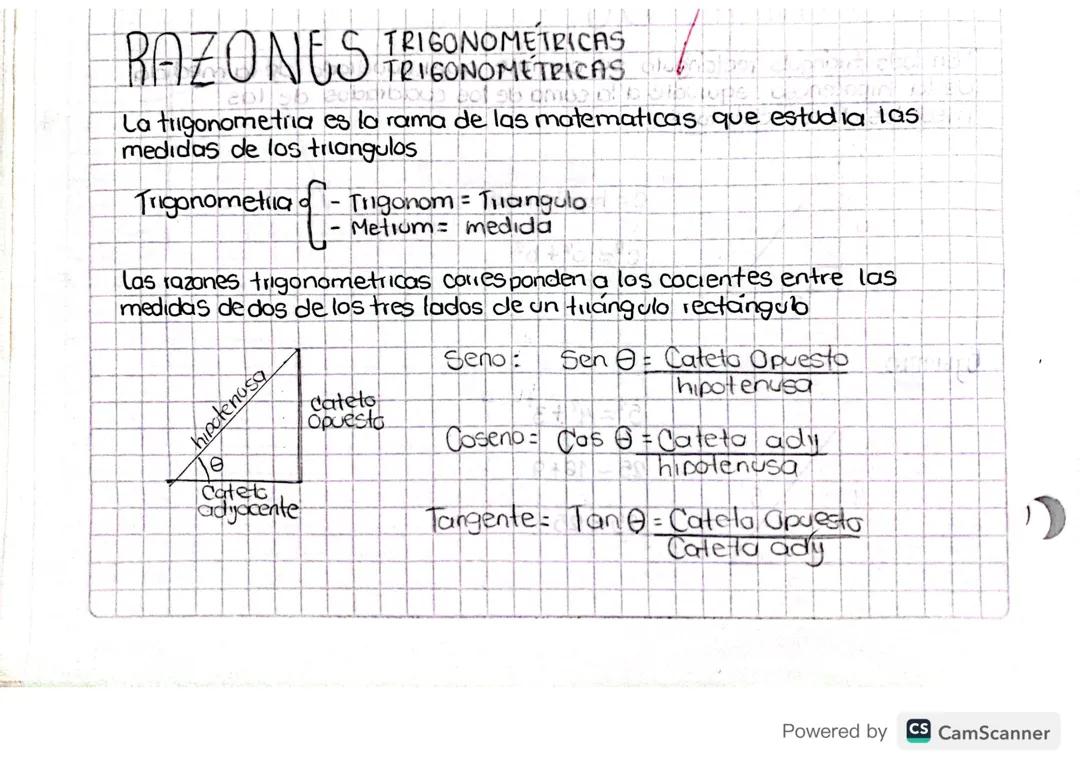 RAZONES TRIGONOMÉTRICAS
TRIGONOMÉTRICAS
La trigonometria es la rama de las matematicas que estudia las
medidas de los triangulos
Trigonometria { - Trigonom = Triangulo
- Metrum = medida
Las razones trigonometricas corresponden a los cocientes entre las
medidas de dos de los tres lados de un triángulo rectángulo
hipotenusa
cateto
opuesto
θ
Cateto
adyacente
Seno: Sen θ = Cateto Opuesto
hipotenusa
Coseno = Cos θ = Cateto ady
hipotenusa
Tangente = Tan θ = Cateto Opuesto
Cateto ady
Powered by CS CamScanner